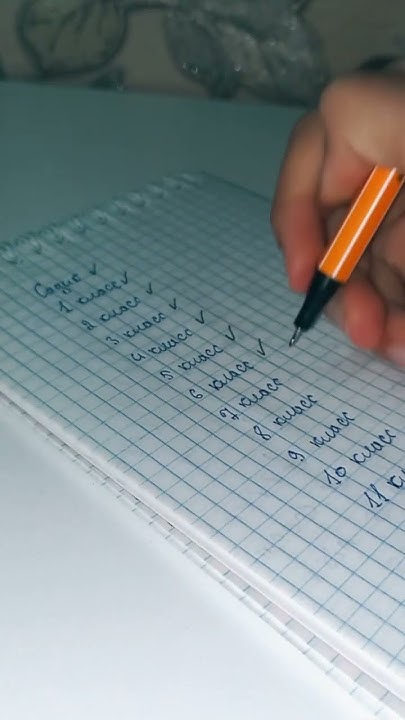 Садик ✓
1 класс ✓
2 класс ✓
3 класс ✓
4 класс ✓
5 класс ✓
6 класс ✓
7 класс
8 класс
9 класс
10 класс
11